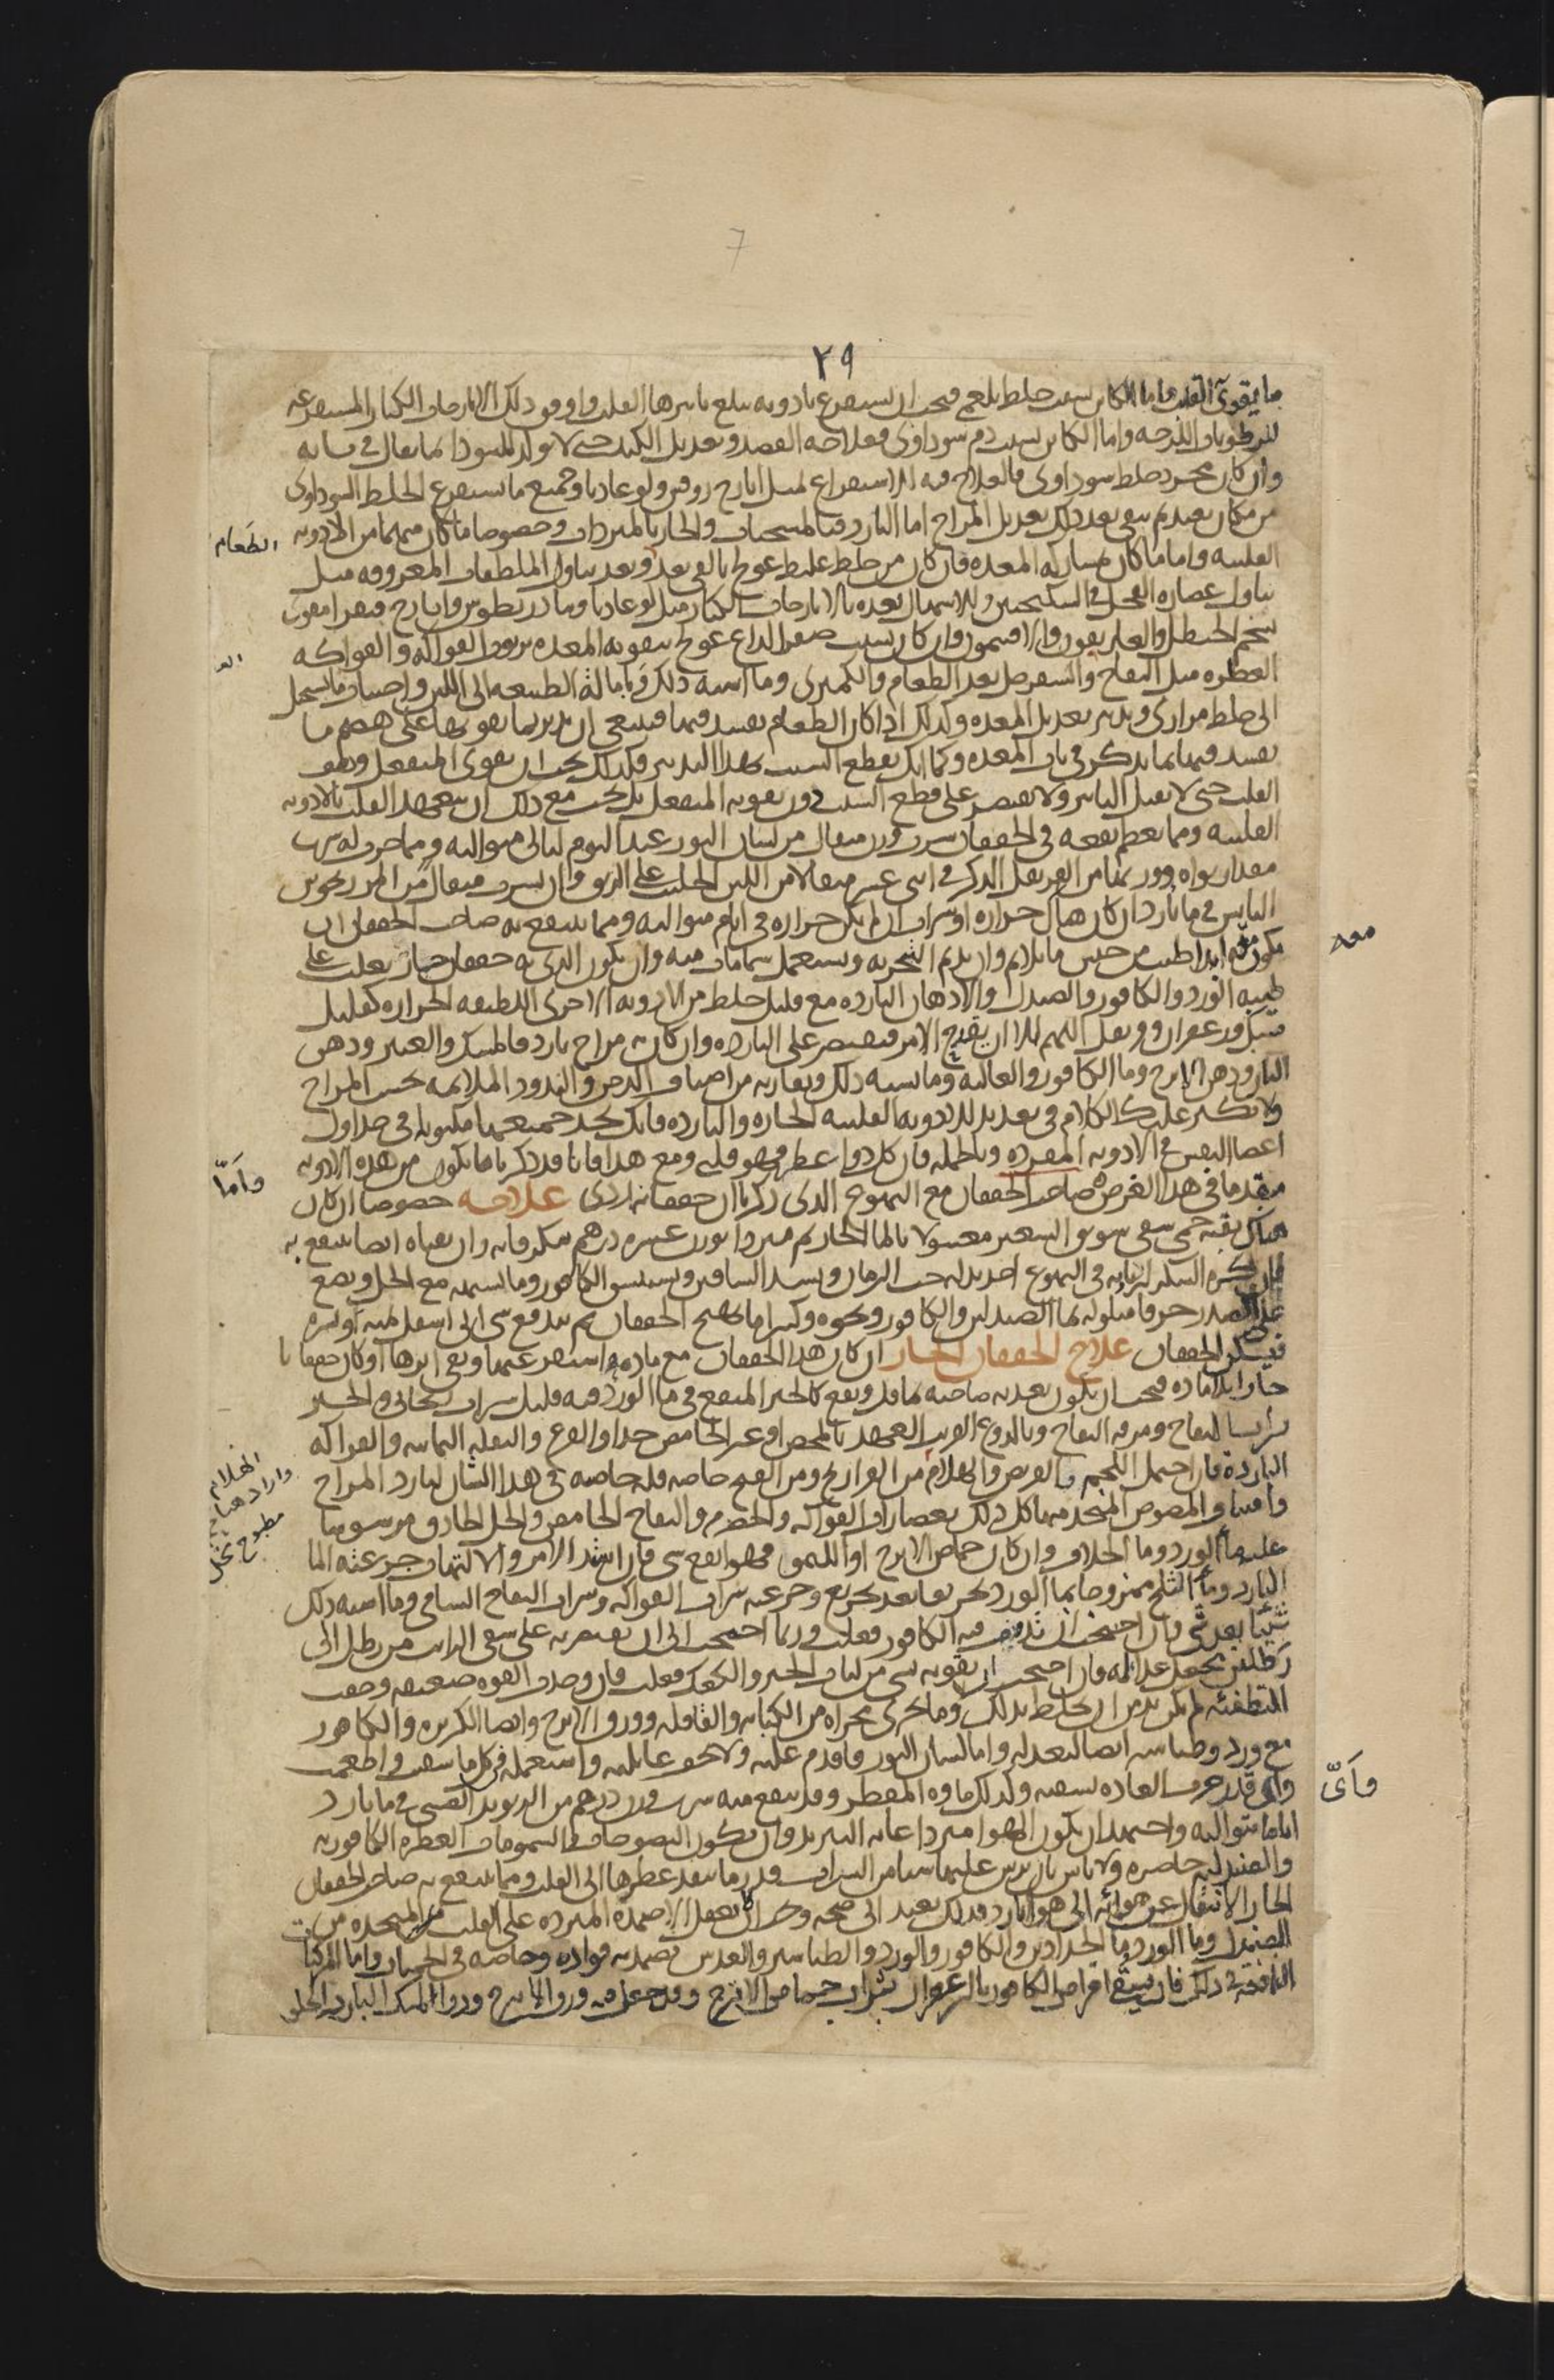 7
٢٩
ما يقوى القلب واما الكائن بسبب خلط بلغمى فيجب ان يستفرغ بادويه يبلغ تاثيرها القلب واوفق ذلك الايارجات الكبار المستفرغه
للرطوبات اللزجه واما الكائن بسبب دم سوداوى فعلاجه الفصد وتعديل الكبد حتى لا تولد السودا كما يقال فى بابه
وان كان مجرد خلط سوداوى فالعلاج فيه الاستفراغ لمثل ايارج روفس ولوغاديا وجميع ما يستفرغ الخلط السوداوى
من مكان بعيد ثم يبغى بعد ذلك تعديل المزاج اما البارد فبالمسخنات والحار بالمبردات وخصوصا ما كان منهما من الادويه
الطعام
القلبيه واما ما كان بمشاركه المعده فان كان من خلط غليظ عولج بالقى بعد وبعد تناول الملطفات المعروفه مثل
تناول عصاره الفجل فى السكنجبين والاسهال بعده بالايارجات الكبار مثل لوغاديا وتيادريطوس وايارج فيقرا مقوى
بشحم الحنظل والغاريقون والافتيمون وان كان بسبب صفرا لذاع عولج بتقويه المعده بربوب الفواكه والفواكه
العطره مثل التفاح والسفرجل بعد الطعام والكمثرى وما اشبه ذلك وبامالة الطبيعه الى اللين واجتناب ما يستحيل
الى خلط مرارى وتدبير تعديل المعده وكذلك اذا كان الطعام يفسد فيها فينبغى ان يدبر بما يقويها على هضم ما
يفسد فيها بما يذكر فى باب المعده وكما انك تقطع السبب بهذا التدبير فكذلك يجب ان تقوى المنفعل وهو
القلب حتى لا يقبل التاثير ولا تقتصر على قطع السبب دون تقويه المنفعل بل يجب مع ذلك ان تتعهد القلب بالادويه
القلبيه ومما يعظم نفعه فى الخفقان شرب وزن مثقال من لسان الثور عند النوم ليالى متواليه ومما جرب له شرب
مقدار نواه وزنا من القرنفل الذكر فى اثنى عشر مثقالا من اللبن الحليب على الريق وان يشرب مثقال من المرزنجوش
اليابس فى ما بارد ان كان هناك حراره او شراب ان لم يكن حراره فى ايام متواليه ومما ينتفع به صاحب الخفقان ان
يكون معه ابدا طيب من جنس ما يلائم وان يديم التبخر به ويستعمل شمامات منه وان يكون الذى به خفقان حار يغلب على
معه
طيبه الورد والكافور والصندل والادهان البارده مع قليل خلط من الادويه الاخرى اللطيفه الحراره كقليل
مسك وزعفران وقرنفل اللهم الا ان يقدح الامر فيقتصر على البارده وان كان به مزاج بارد فالمسك والعنبر ودهن
البان ودهن الاترج وما الكافور والغاليه وما يشبه ذلك ويقاربه من اصناف الدخن والندود الملايمه بحسب المزاج
ولا نكثر عليك الكلام فى تعديد الادويه القلبيه الحاره والبارده فانك تجد جميعها مكتوبا فى جداول
اعضا النفس فى الادويه المفرده وبالجمله فان كل دوا عطر فهو قلبى ومع هذا فانا قد ذكرنا ما يكون من هذه الادويه
مقدما فى هذا الغرض صاحب الخفقان مع التهوع الذى ذكرنا ان خفقانه ردى علاجه خصوصا ان كان
واما
هناك بقيه حمى يسقى سويق الشعير مغسولا بالما الحار ثم مبردا بوزن عشره دراهم سكر فانه وان تقياه ايضا ينتفع به
فان كره السكر لزيادته فى التهوع اخذ بدله حب الرمان ويشد الساقين ويستنشق الكافور وما يشبهه مع الخل ويضع
على الصدر خرقا مبلوله بما الصندل والكافور ونحوه وكثيرا ما يهيج الخفقان ثم يندفع شى الى اسفل
فيسكن الخفقان علاج الخفقان الحار ان كان هذا الخفقان مع ماده استفرغتها وبقى اثرها او كان خفقانا
حارا بلا ماده فيجب ان يكون تغذيه صاحبه بما قل ونفع كالخبز المنقع فى ما الورد فيه قليل شراب ريحانى والخبز
بشراب التفاح ومرقه التفاح وبالدوغ القريب العهد بالمخض او غير الحامض جدا والقرع والبقله اليمانيه والفواكه
البارده فان احتمل اللحم فالقريص والهلام من الفراريج ومن القبج خاصه فله خاصيه فى هذا الشان لبارد المزاج
واصناف المصوص المتخذ منها كل ذلك بعصارات الفواكه والحصرم والتفاح الحامض والخل الحاذق مرشوشا
الهلام
مطبوخ بخل
عليه ما الورد وما الخلاف وان كان حماض الاترج او الليمو فهو انفع شى فان اشتد الامر والالتهاب جرعته الما
البارد وما الثلج ممزوجا بما الورد تجريعا بعد تجريع وجرعته شراب الفواكه وشراب التفاح الشامى وما اشبه ذلك
شيئا بعد شى وان احتجت ان تدوف فيه الكافور فعلت وربما احتجت الى ان تقتصر به على سقى الرايب من رطل الى
رطلين تجعل غذاه فان احتجت ان تقويه بشى من لباب الخبز والكعك فعلت فان وجدت القوه ضعيفه وخفت
التطفئه لم يكن بد من ان يخلط بذلك وما يجرى مجراه من الكبابه والقاقله وورق الاترج وايضا الكزبره والكافور
مع ورد وطباشير ايضا لتعدله واما لسان الثور فاقدم عليه ولا تخف غائلته واستعمله فى كل ما سقيت واطعمت
واى قدر جرت العاده بسقيه وكذلك ماوه المقطر وقد ينتفع منه بشرب وزن درهم من الريوند الصينى فى ما بارد
واى
اياما متواليه واجتهد ان يكون الهوا مبردا غايه التبريد وان يكون النضوحات والشمومات العطره الكافوريه
والصندليه حاضره ولا باس بان يرش عليها شيا من الشراب قدر ما ينفذ عطرها الى القلب ومما ينتفع به صاحب الخفقان
الحار الانتقال عن هوائه الى هوا بارد فذلك يعيده الى صحه ويجب ان لا تغفل الاضمده المبرده على القلب المتخذه من
الصندل وما الورد وما الخلاف والكافور والورد والطباشير والعدس تضمد به فواده وخاصه فى الحميات واما المركبات
النافعه فى ذلك فان يسقى اقراص الكافور بالزعفران بشراب حماض الاترج وقد جعل فيه ورق الاترج ودوا المسك البارد والحلو